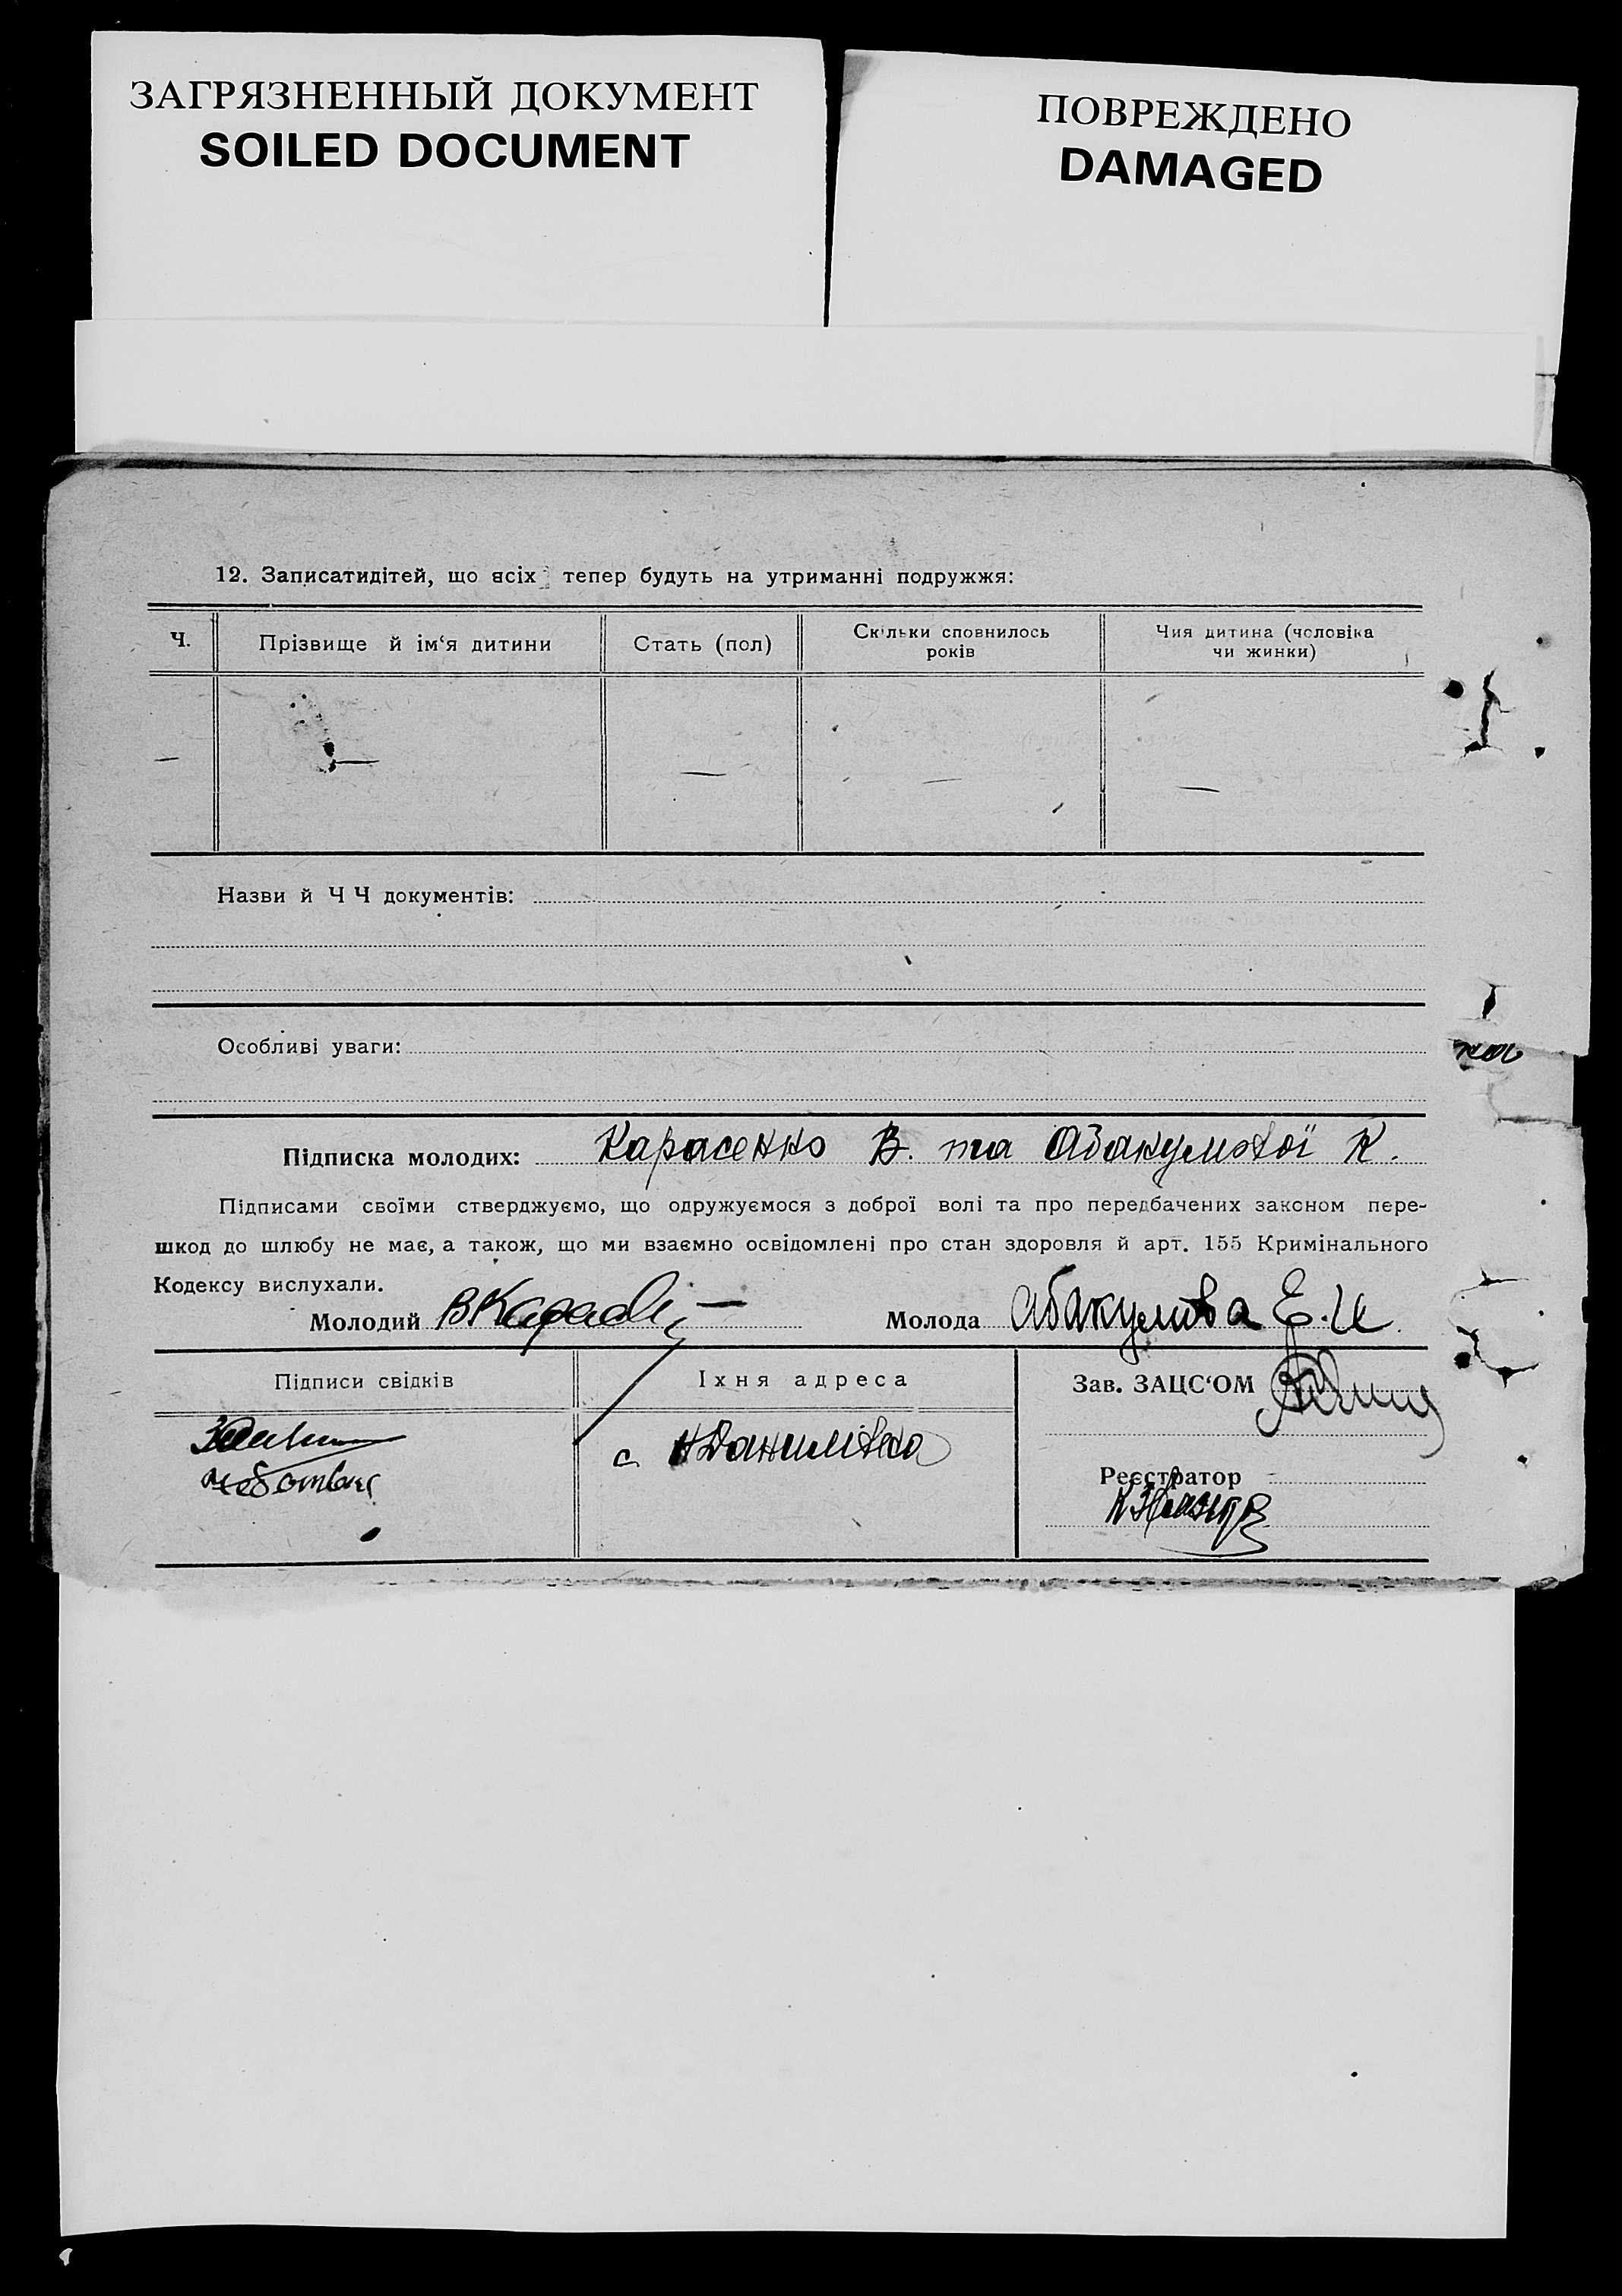 ЗАГРЯЗНЕННЫЙ ДОКУМЕНТ
SOILED DOCUMENT
ПОВРЕЖДЕНО
DAMAGED
12. Записатидітей, що всіх тепер будуть на утриманні подружжя:
Ч.
Прізвище й ім‘я дитини
Стать (пол)
Скільки сповнилось
років
Чия дитина (чоловіка
чи жинки)
— — — — —
Назви й Ч Ч документів:
Особливі уваги:
Підписка молодих: Карасенко В. та Абакумової К.
Підписами своїми стверджуємо, що одружуємося з доброї волі та про передбачених законом пере-
шкод до шлюбу не має, а також, що ми взаємно освідомлені про стан здоровля й арт. 155 Кримінального
Кодексу вислухали.
Молодий
Молода Абакумова Е. И.
Підписи свідків
Їхня адреса
Зав. ЗАЦС‘ОМ
с. Н Данилівка
Реєстратор